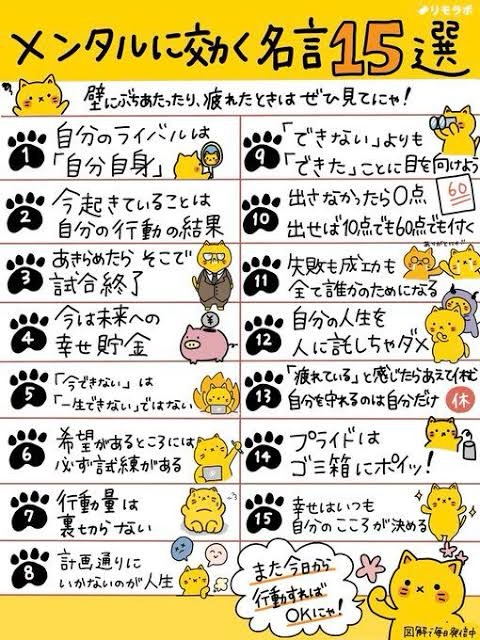 リモラボ
メンタルに効く名言15選
壁にぶちあたったり、疲れたときは ぜひ見てにゃ!
1
自分のライバルは
「自分自身」
2
今起きていることは
自分の行動の結果
3
あきらめたら そこで
試合終了
4
今は未来への
幸せ貯金
¥
5
「今できない」は
「一生できない」ではない
6
希望があるところには
必ず試練がある
7
行動量は
裏切らない
8
計画通りに
いかないのが人生
9
「できない」よりも
「できた」ことに目を向けよう
10
出さなかったら0点、
出せば10点でも60点でも付く
60
ありがとにゃ!
11
失敗も成功も
全て誰かのためになる
12
自分の人生を
人に託しちゃダメ
13
「疲れている」と感じたらあえて休む
自分を守れるのは自分だけ
休
14
プライドは
ゴミ箱にポイッ!
15
幸せはいつも
自分のこころが決める
また今日から
行動すれば
OKにゃ!
図解毎日発信中